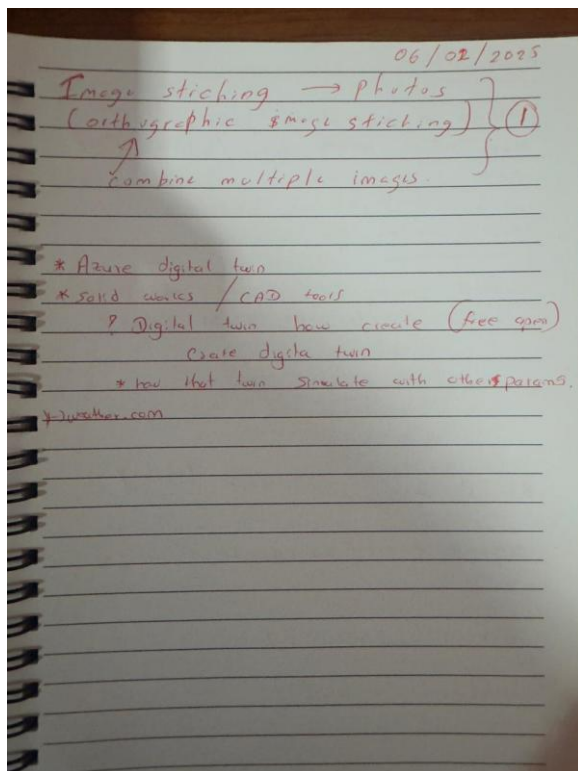 06/02/2025
Image stiching → photos
(orthographic image stiching) } ①
combine multiple images.
* Azure digital twin
* Solid works / CAD tools
? Digital twin how create (free open)
Create digita twin
* how that twin simulate with others params.
*→weather.com